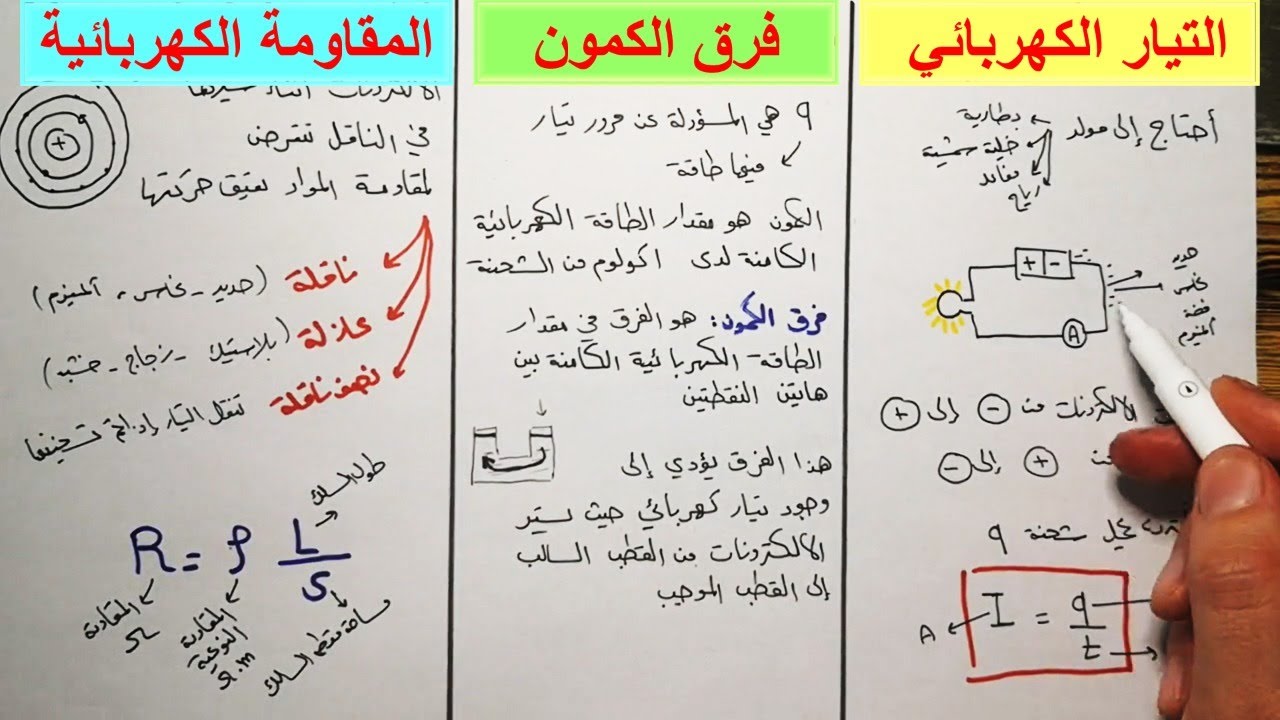 التيار الكهربائي
أحتاج إلى مولد
بطارية
خلية شمسية
رياح
+ -
حديد
نحاس
فضة
ألمنيوم
A
الالكترونات من - إلى +
من + إلى -
يحمل شحنة q
I = q/t
A
فرق الكمون
q هي المسؤولة عن مرور تيار
فيها طاقة
الكمون هو مقدار الطاقة الكهربائية
الكامنة لدى 1 كولوم من الشحنة
فرق الكمون: هو الفرق في مقدار
الطاقة الكهربائية الكامنة بين
هاتين النقطتين
هذا الفرق يؤدي إلى
وجود تيار كهربائي حيث تسير
الالكترونات من القطب السالب
إلى القطب الموجب
المقاومة الكهربائية
الالكترونات أثناء سيرها
في الناقل تتعرض
لمقاومة المواد تعيق حركتها
+
ناقلة (حديد - نحاس، ألمنيوم)
عازلة (بلاستيك - زجاج - خشب)
نصف ناقلة تنقل التيار إذا تم تسخينها
طول السلك
R = ρ L/S
المقاومة
Ω
المقاومة
النوعية
Ω.m
مساحة مقطع السلك